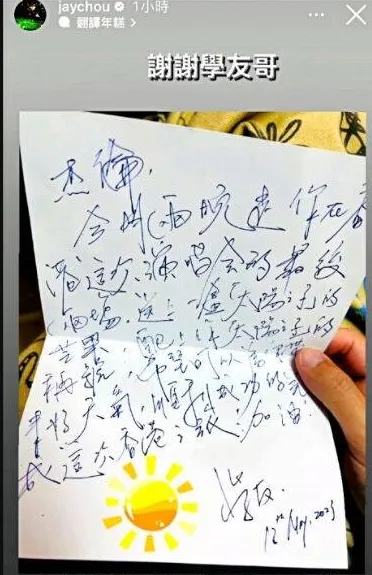 jaychou 1小時
翻譯年糕
謝謝學友哥
杰倫,
今明兩晚是你在香
港這次演唱会的最後
兩場,送上一太陽之的
,配上你太陽之的
稱號,希望可以
来好天氣,順利成功的完
成這次香港之旅,加油!
學友.
12th Nov, 2023